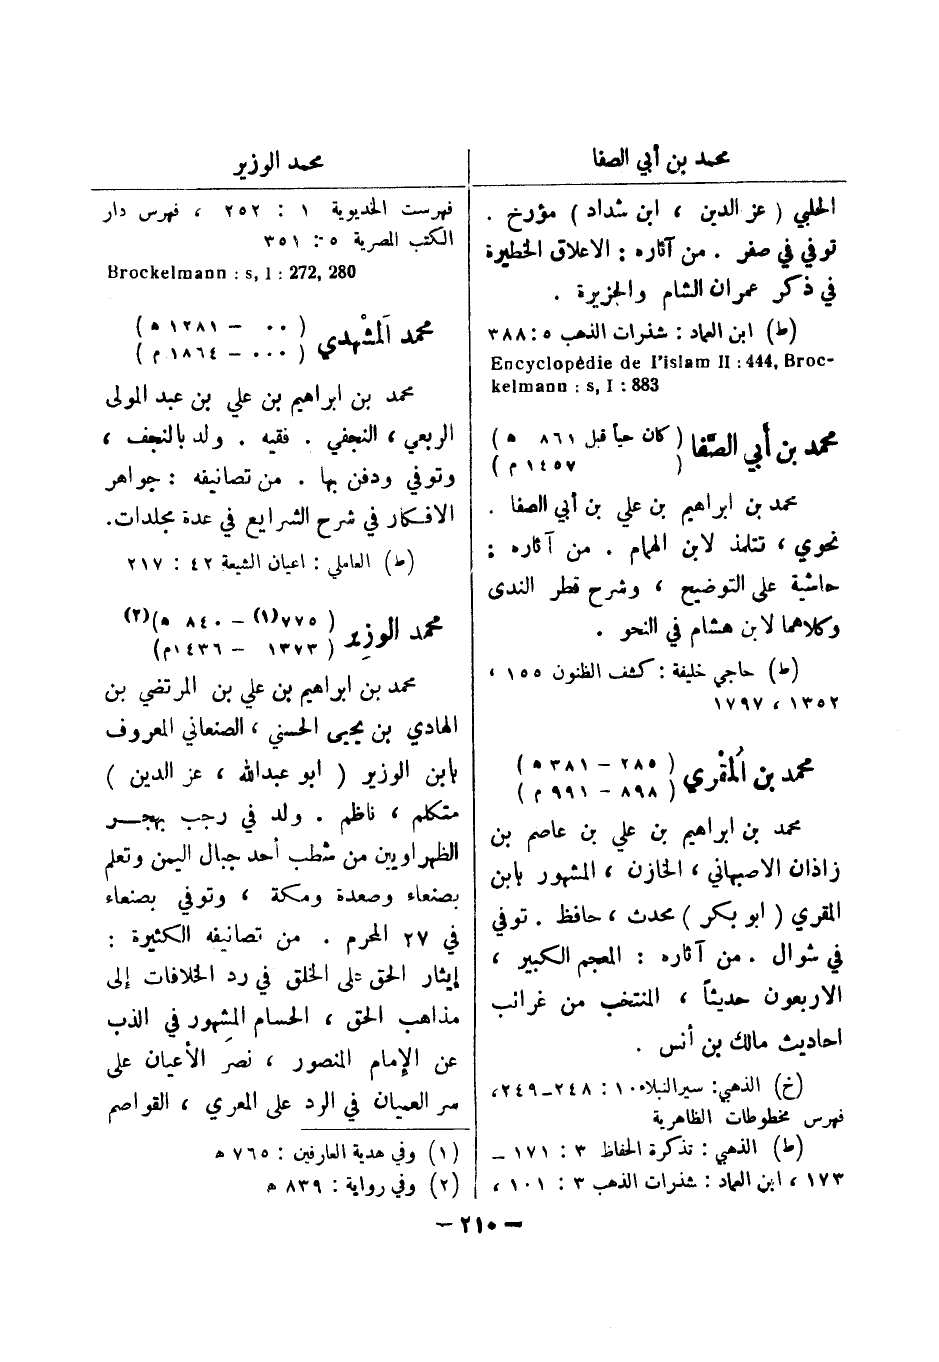 محمد بن أبي الصفا
الحلبي ( عز الدين ، ابن شداد ) مؤرخ .
توفي في صفر . من آثاره : الاعلاق الخطيرة
في ذكر عمران الشام والجزيرة .
(ط) ابن العماد : شذرات الذهب ٥ : ٣٨٨
Encyclopédie de l'islam II : 444, Broc-
kelmann : s, I : 883
محمد بن أبي الصَّفا ( كان حياً قبل ٨٦١ هـ )
( ١٤٥٧ م )
محمد بن ابراهيم بن علي بن أبي الصفا .
نحوي ، تتلمذ لابن الهمام . من آثاره :
حاشية على التوضيح ، وشرح قطر الندى
وكلاهما لابن هشام في النحو .
(ط) حاجي خليفة : كشف الظنون ١٥٥ ،
١٣٥٢ ، ١٧٩٧
محمد بن المُقْري ( ٢٨٥ – ٣٨١ هـ )
( ٨٩٨ – ٩٩١ م )
محمد بن ابراهيم بن علي بن عاصم بن
زاذان الاصبهاني ، الخازن ، المشهور بابن
المقري ( ابو بكر ) محدث ، حافظ . توفي
في شوال . من آثاره : المعجم الكبير ،
الاربعون حديثاً ، المنتخب من غرائب
احاديث مالك بن أنس .
(خ) الذهبي : سير النبلاء ١٠ : ٢٤٨ – ٢٤٩ ،
فهرس مخطوطات الظاهرية
(ط) الذهبي : تذكرة الحفاظ ٣ : ١٧١ –
١٧٣ ، ابن العماد : شذرات الذهب ٣ : ١٠١ ،
محمد الوزير
فهرست الخديوية ١ : ٢٥٢ ، فهرس دار
الكتب المصرية ٥ : ٣٥١
Brockelmann : s, I : 272, 280
محمد المَشْهدي ( ٠٠ – ١٢٨١ هـ )
( ٠٠٠ – ١٨٦٤ م )
محمد بن ابراهيم بن علي بن عبد المولى
الربعي ، النجفي . فقيه . ولد بالنجف ،
وتوفي ودفن بها . من تصانيفه : جواهر
الافكار في شرح الشرايع في عدة مجلدات .
(ط) العاملي : اعيان الشيعة ٤٢ : ٢١٧
محمد الوزير ( ٧٧٥(١) – ٨٤٠ هـ)(٢)
( ١٣٧٣ – ١٤٣٦م)
محمد بن ابراهيم بن علي بن المرتضي بن
الهادي بن يحيى الحسني ، الصنعاني المعروف
بابن الوزير ( ابو عبدالله ، عز الدين )
متكلم ، ناظم . ولد في رجب بهجر
الظهراوين من شطب أحد جبال اليمن وتعلم
بصنعاء وصعدة ومكة ، وتوفي بصنعاء
في ٢٧ المحرم . من تصانيفه الكثيرة :
إيثار الحق على الخلق في رد الخلافات إلى
مذاهب الحق ، الحسام المشهور في الذب
عن الإمام المنصور ، نصر الأعيان على
سر العميان في الرد على المعري ، القواصم
(١) وفي هدية العارفين : ٧٦٥ هـ
(٢) وفي رواية : ٨٣٩ هـ
– ٢١٠ –